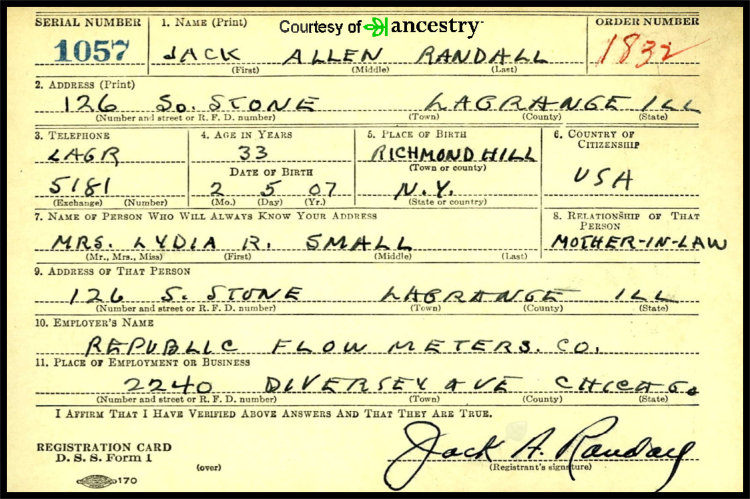 Courtesy of ancestry
SERIAL NUMBER 1. NAME (Print) ORDER NUMBER
1057 JACK ALLEN RANDALL 1832
(First) (Middle) (Last)
2. ADDRESS (Print)
126 SO. STONE LAGRANGE ILL
(Number and street or R. F. D. number) (Town) (County) (State)
3. TELEPHONE 4. AGE IN YEARS 5. PLACE OF BIRTH 6. COUNTRY OF CITIZENSHIP
LAGR 33 RICHMOND HILL
(Town or county)
DATE OF BIRTH USA
5181 2 5 07 N.Y.
(Exchange) (Number) (Mo.) (Day) (Yr.) (State or country)
7. NAME OF PERSON WHO WILL ALWAYS KNOW YOUR ADDRESS 8. RELATIONSHIP OF THAT PERSON
MRS. LYDIA R. SMALL MOTHER-IN-LAW
(Mr., Mrs., Miss) (First) (Middle) (Last)
9. ADDRESS OF THAT PERSON
126 S. STONE LAGRANGE ILL
(Number and street or R. F. D. number) (Town) (County) (State)
10. EMPLOYER'S NAME
REPUBLIC FLOW METERS. CO.
11. PLACE OF EMPLOYMENT OR BUSINESS
2240 DIVERSEY AVE CHICAGO
(Number and street or R. F. D. number) (Town) (County) (State)
I AFFIRM THAT I HAVE VERIFIED ABOVE ANSWERS AND THAT THEY ARE TRUE.
REGISTRATION CARD
D. S. S. Form 1 (over) Jack A. Randall
(Registrant's signature)
170